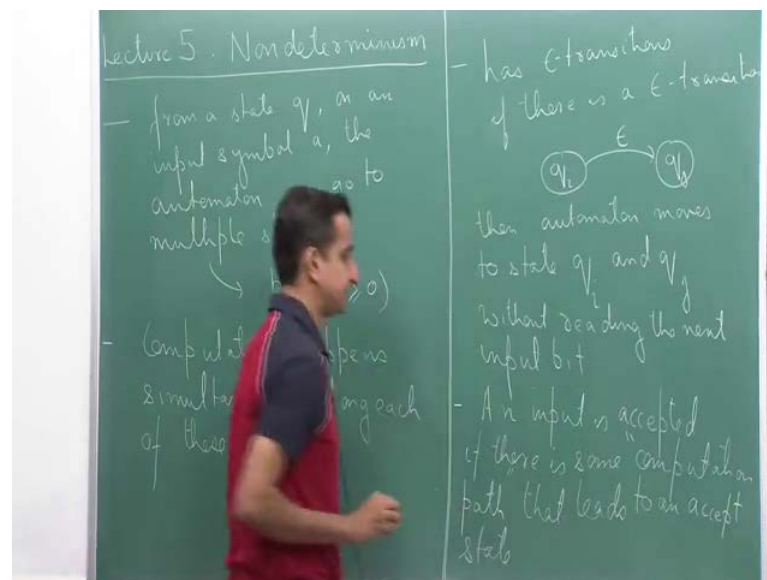 Lecture 5. Nondeterminism
— from a state q, on an
input symbol a, the
automaton go to
multiple s
→ ≥ 0)
- Computat ppens
simulta ong each
of these
- has ε-transitions
if there is a ε-transition
q_i ε q_j
then automaton moves
to state q_i and q_j
without reading the next
input bit
- An input is accepted
if "there is some "computation
path that leads to an accept
state